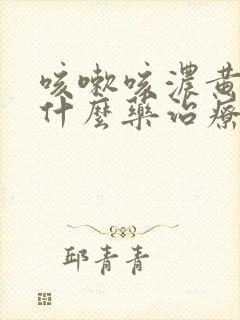 咳嗽咳濃黄
什麼藥治療
邱青青